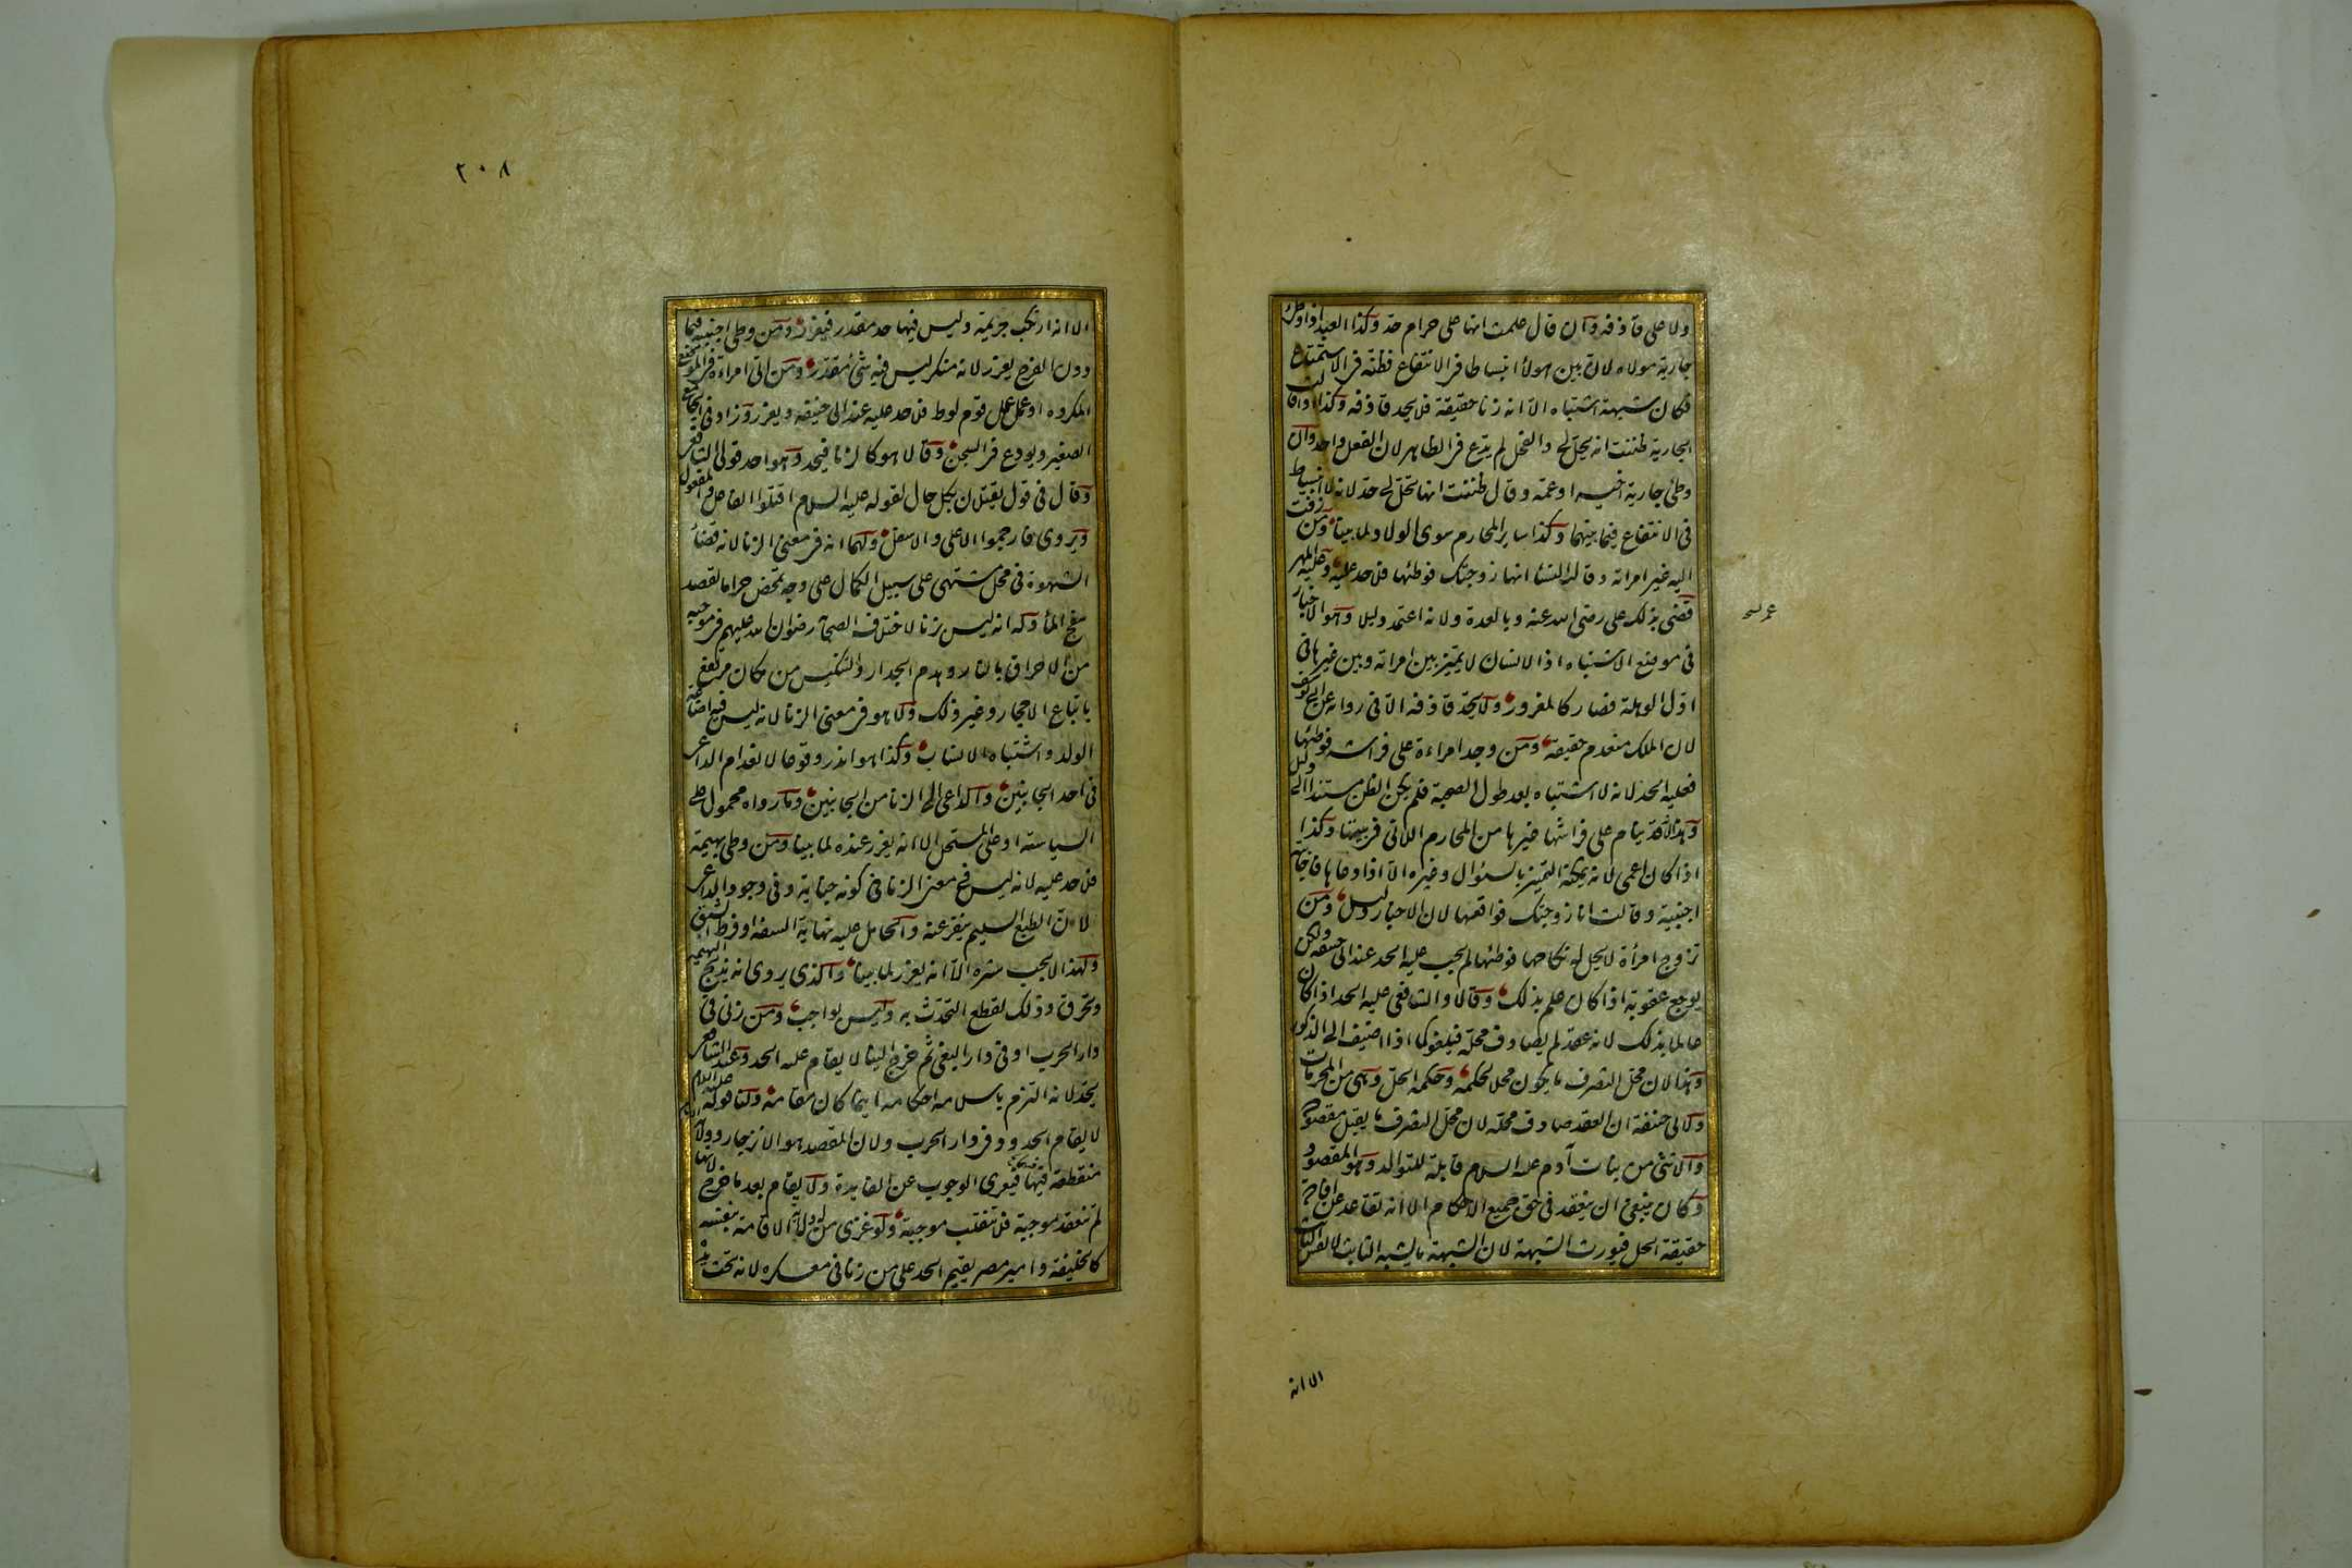 ولا على قاذفه وان قال علمت انها على حرام حد وكذا العبد اذا وطئ
جارية مولاه لان بين هولاء انبساطا فى الانتفاع فظنه فى الاستمتاع
فكان شبهة اشتباه الا انه زنا حقيقة فلا يحد قاذفه وكذا اذا قالت
الجارية ظننت انه يحل لى والفحل لم يدع فى الظاهر لان الفعل واحد وان
وطئ جارية اخيه او عمه وقال ظننت انها تحل لى حد لانه لا انبساط
فى الانتفاع فيما بينهما وكذا ساير المحارم سوى الولاد لما بينا ومن زفت
اليه غير امراته وقالت النسا انها زوجتك فوطئها فلا حد عليه وعليه المهر
قضى بذلك على رضى الله عنه وبالعدة ولانه اعتمد دليلا وهو الاخبار
فى موضع الاشتباه اذ الانسان لا يميز بين امراته وبين غيرها فى
اول الوهلة فصار كالمغرور ولا يحد قاذفه الا فى رواية عن ابى يوسف
لان الملك منعدم حقيقة ومن وجد امراءة على فراشه فوطئها
فعليه الحد لانه لا اشتباه بعد طول الصحبة فلم يكن الظن مستندا الى دليل
وهذا لانه قد ينام على فراشها غيرها من المحارم اللاتى فى بيتها وكذا
اذا كان اعمى لانه يمكنه التميز بالسؤال وغيره الا اذا دعاها فاجابته
اجنبية وقالت انا زوجتك فواقعها لان الاخبار دليل ومن
تزوج امرأة لا يحل له نكاحها فوطئها لم يجب عليه الحد عند ابى حنيفه ولكن
يوجع عقوبة اذا كان علم بذلك وقالا والشافعى عليه الحد اذا كان
عالما بذلك لانه عقد لم يصادف محله فيلغو كما اذا اضيف الى الذكور
وهذا لان محل التصرف ما يكون محلا لحكمه وحكمه الحل وهى من المحرمات
ولابى حنيفة ان العقد صادف محله لان محل التصرف ما يقبل مقصوده
والانثى من بنات آدم عليه السلام قابلة للتوالد وهو المقصود
وكان ينبغى ان ينعقد فى حق جميع الاحكام الا انه تقاعد عن افادة
حقيقة الحل فيورث الشبهة لان الشبهة ما يشبه الثابت لا نفس الثابت
الا انه
٢٠٨
الا انه ارتكب جريمة وليس فيها حد مقدر فيعزر ومن وطى اجنبية فيما
دون الفرج يعزر لانه منكر ليس فيه شئ مقدر ومن اتى امراءة فى الموضع
المكروه او عمل عمل قوم لوط فلا حد عليه عند ابى حنيفه ويعزر وزاد فى الجامع
الصغير ويودع فى السجن وقالا هو كالزنا فيحد وهو احد قولى الشافعى
وقال فى قول يقتلان بكل حال لقوله عليه السلام اقتلوا الفاعل والمفعول
ويروى فارجموا الاعلى والاسفل ولهما انه فى معنى الزنا لانه قضاء
الشهوة فى محل مشتهى على سبيل الكمال على وجه تمحض حراما لقصد
سفح الماء وله انه ليس زنا لاختلاف الصحابة رضوان الله عليهم فى موجبه
من الاحراق بالنار وهدم الجدار والتنكيس من مكان مرتفع
باتباع الاحجار وغير ذلك ولا هو فى معنى الزنا لانه ليس فيه اضاعة
الولد واشتباه الانساب وكذا هو اندر وقوعا لانعدام الداعى
فى احد الجانبين والداعى الى الزنا من الجانبين وما رواه محمول على
السياسة او على المستحل الا انه يعزر عنده لما بينا ومن وطى بهيمة
فلا حد عليه لانه ليس فى معنى الزنا فى كونه جناية وفى وجود الداعى
لان الطبع السليم ينفر عنه والحامل عليه نهاية السفه او فرط الشبق
ولهذا لا يجب ستره الا انه يعزر لما بينا والذى يروى انه تذبح البهيمة
وتحرق وذلك لقطع التحدث به وليس بواجب ومن زنى فى
دار الحرب او فى دار البغى ثم خرج الينا لا يقام عليه الحد وعند الشافعى
يحد لانه التزم باسلامه احكامه اينما كان مقامه ولنا قوله عليه السلام
لا يقام الحدود فى دار الحرب ولان المقصد هو الانزجار وولاية الامام
منقطعة فيها فيعرى الوجوب عن الفايدة ولا يقام بعد ما خرج لانها
لم تنعقد موجبة فلا تنقلب موجبة ولو غزى من له ولاية الاقامة بنفسه
كالخليفة وامير مصر يقيم الحد على من زنا فى معسكره لانه تحت يده